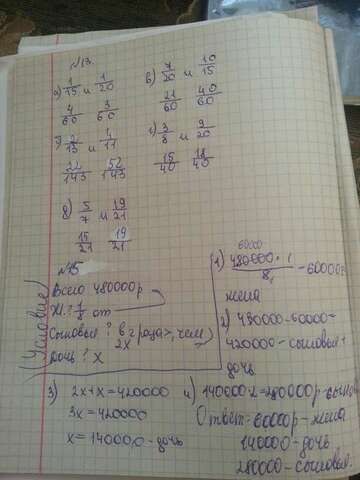 №13.
а) 1/15 и 1/20 в) 7/20 и 10/15
4/60 3/60 21/60 40/60
б) 2/13 и 4/11 г) 3/8 и 9/20
22/143 52/143 15/40 18/40
д) 5/7 и 19/21
15/21 19/21
№15
(Условие)
Всего 480000р
Ж. ? 1/8 от
Сыновья ? в 2 раза >, чем
2х
Дочь ? х
1) 480000 · 1 / 8 - 60000р
60000
жена
2) 480000-60000=
420000-сыновья +
дочь
3) 2х+х=420000
3х=420000
х=140000-дочь
4) 140000·2=280000р-сыновья
Ответ: 60000р-жена
140000-дочь
280000-сыновья.